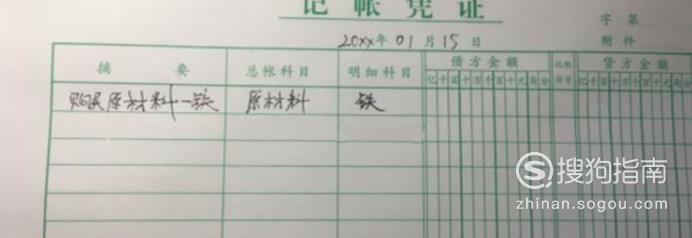 记帐凭证
字 第
20xx年 01月 15日
附件
摘 要 总帐科目 明细科目 借方金额 记帐符号 贷方金额
亿千百十万千百十元角分 亿千百十万千百十元角分
购买原材料-铁 原材料 铁
S 搜狗指南
zhinan.sogou.com